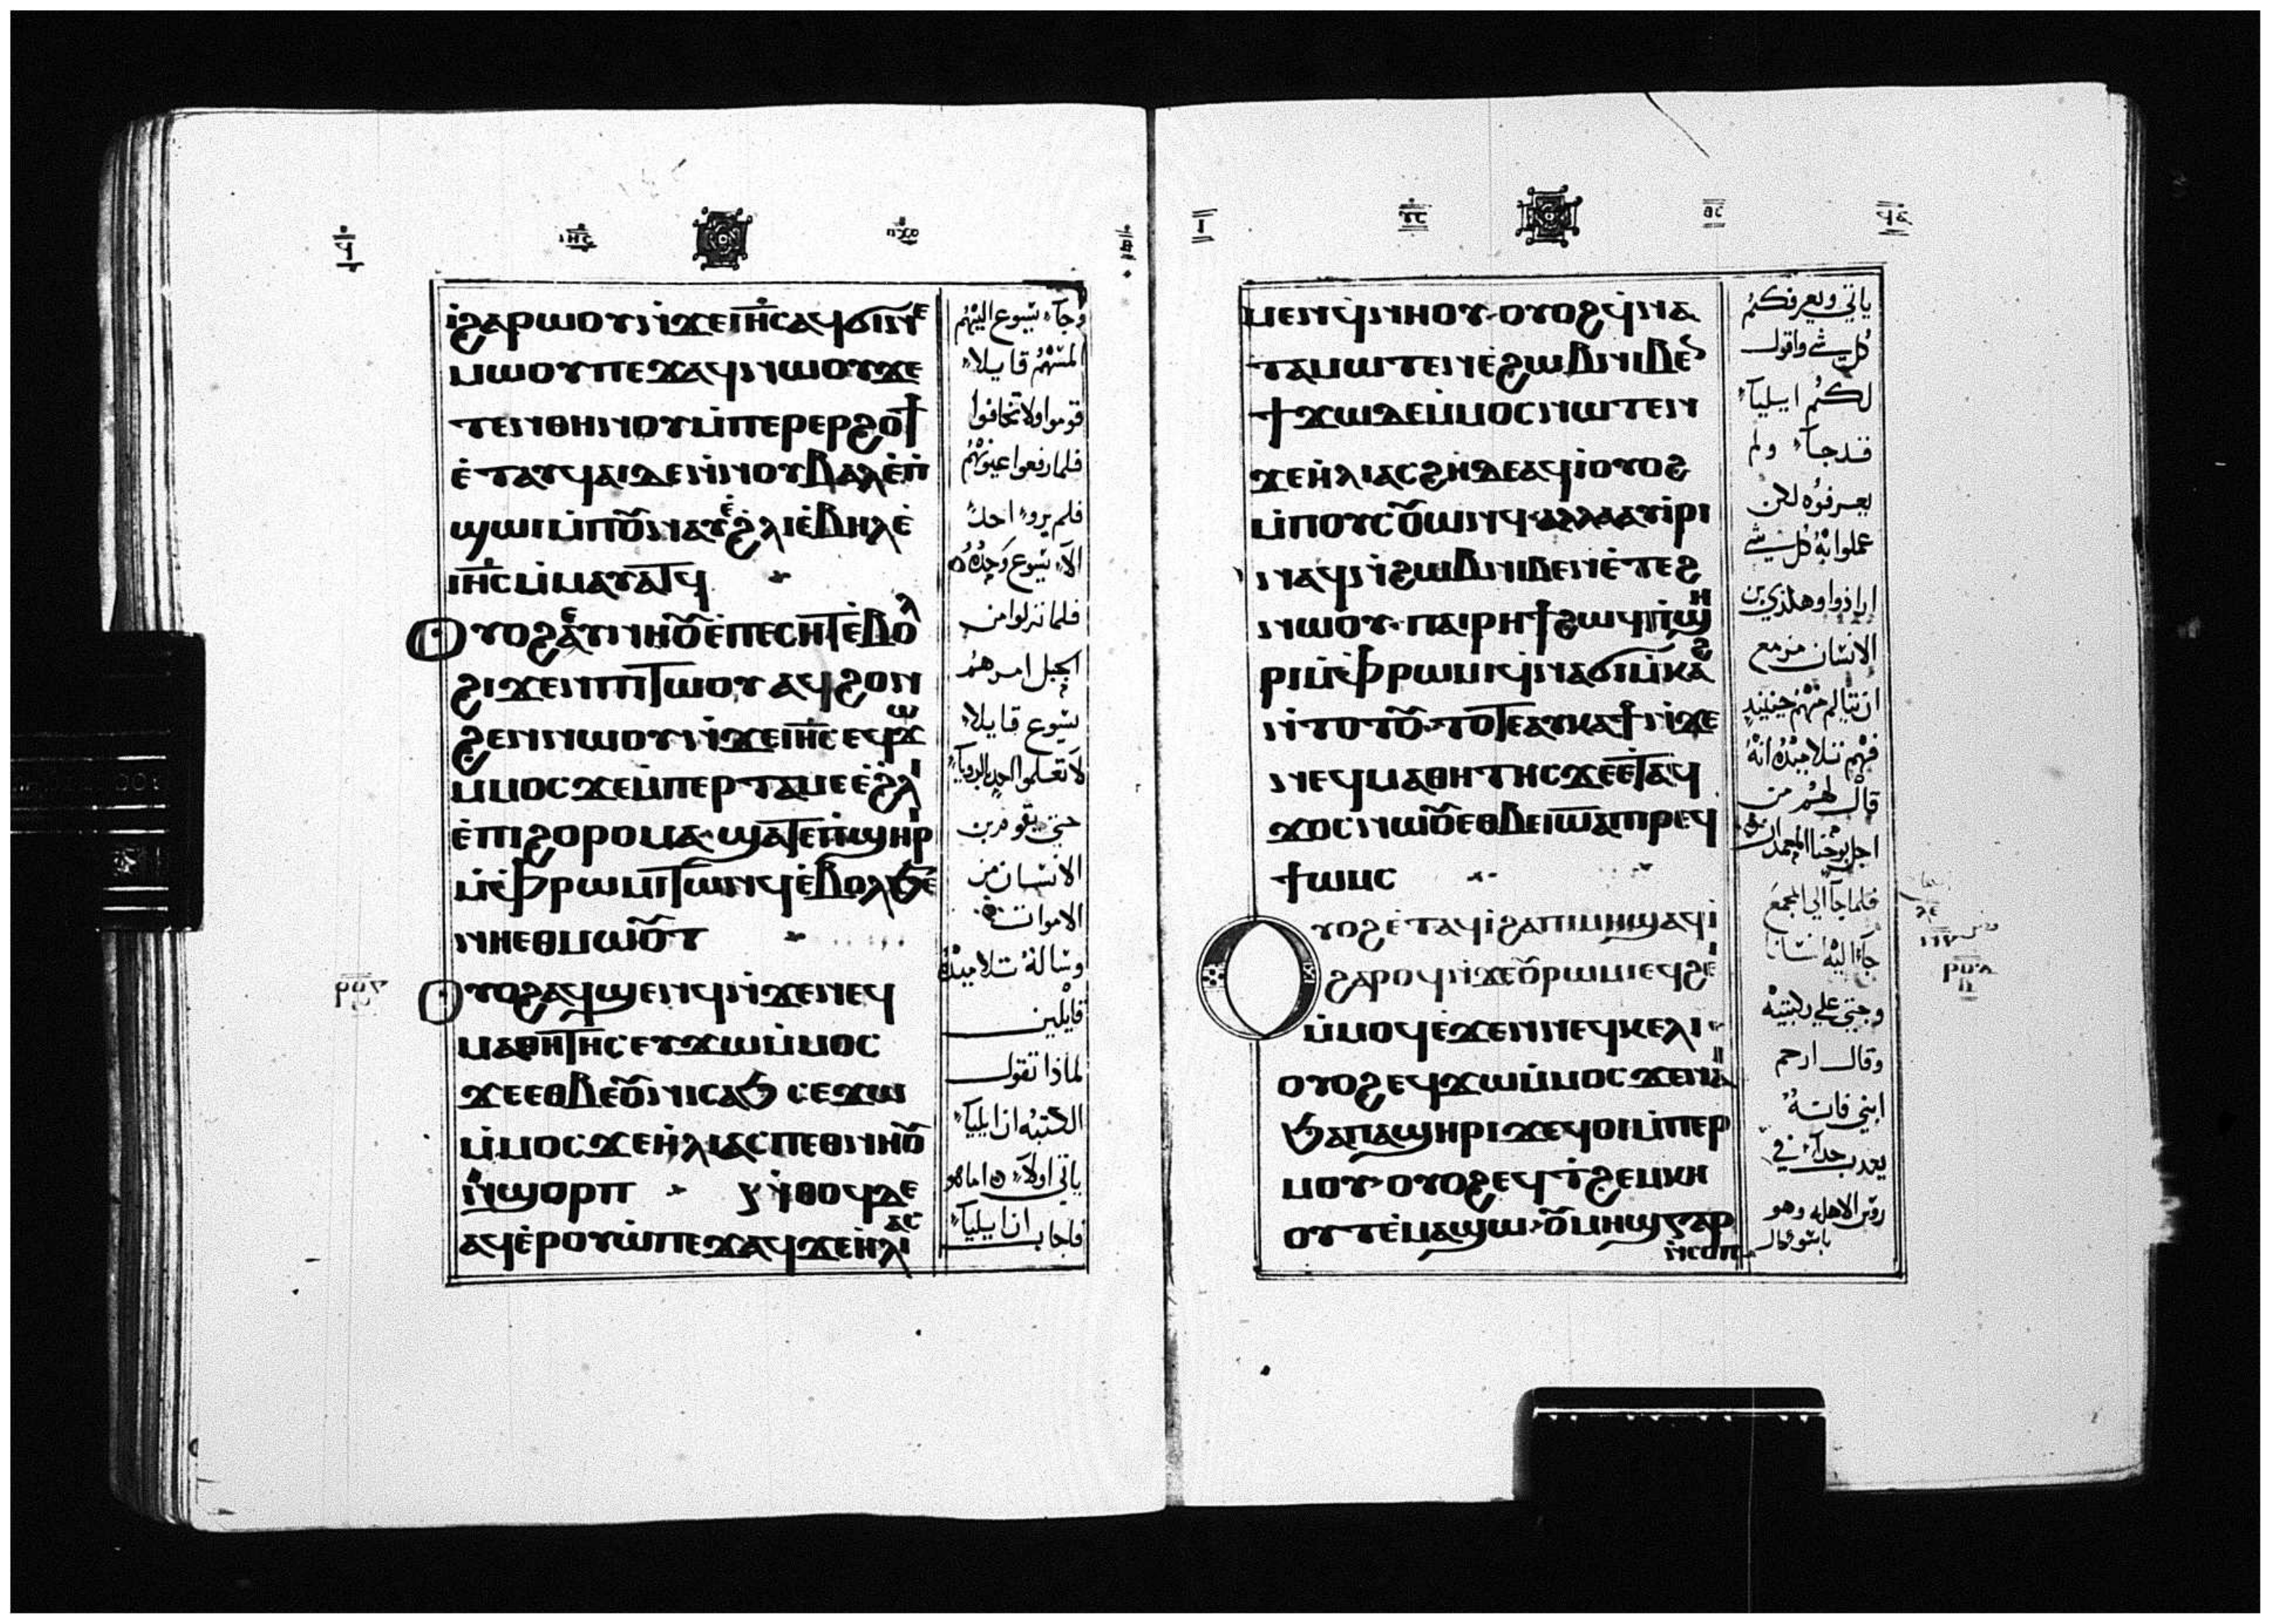 ⲓ̀ϩⲁⲣⲱⲟⲩⲛ̀ϫⲉⲓⲏ̅ⲥ̅ⲁϥϭⲓⲛⲉ
ⲙⲱⲟⲩⲡⲉϫⲁϥⲛⲱⲟⲩϫⲉ
ⲧⲉⲛⲑⲏⲛⲟⲩⲙ̀ⲡⲉⲣⲉⲣϩⲟϯ
ⲉ̀ⲧⲁⲩϥⲁⲓⲇⲉⲛ̀ⲛⲟⲩⲃⲁⲗⲉ̀ⲡ̀
ϣⲱⲓⲙ̀ⲡⲟⲩⲛⲁⲩⲉ̀ϩ̀ⲗⲓⲉ̀ⲃⲏⲗⲉ̀
ⲓⲏ̅ⲥ̅ⲙ̀ⲙⲁⲩⲁⲧϥ
ⲟⲩⲟϩⲉⲩⲛⲏⲟⲩⲉ̀ⲡⲉⲥⲏⲧⲉ̀ⲃⲟⲗ
ϩⲓϫⲉⲛⲡⲓⲧⲱⲟⲩ ⲁϥϩⲟⲛ
ϩⲉⲛⲛⲱⲟⲩⲛ̀ϫⲉⲓⲏ̅ⲥ̅ⲉϥϫⲱ
ⲙ̀ⲙⲟⲥϫⲉⲙ̀ⲡⲉⲣⲧⲁⲙⲉⲉ̀ϩ̀ⲗⲓ
ⲉ̀ⲡⲓϩⲟⲣⲟⲙⲁ·ϣⲁⲧⲉⲡ̀ϣⲏⲣⲓ
ⲙ̀ⲫ̀ⲣⲱⲙⲓⲧⲱⲛϥⲉ̀ⲃⲟⲗϧⲉ
ⲛⲏⲉⲑⲙⲱⲟⲩⲧ
ⲟⲩⲟϩⲁⲩϣⲉⲛϥⲛ̀ϫⲉⲛⲉϥ
ⲙⲁⲑⲏⲧⲏⲥⲉⲩϫⲱⲙ̀ⲙⲟⲥ
ϫⲉⲉⲑⲃⲉⲟⲩⲛⲓⲥⲁϧ ⲥⲉϫⲱ
ⲙ̀ⲙⲟⲥϫⲉⲏ̀ⲗⲓⲁⲥⲡⲉⲑⲛⲏⲟⲩ
ⲛ̀ϣⲟⲣⲡ ⲛ̀ⲑⲟϥⲇⲉ
ⲁϥⲉ̀ⲣⲟⲩⲱ̀ⲡⲉϫⲁϥϫⲉⲏ̀ⲗⲓⲁⲥ
وجاء يسوع اليهم
لمسهم قايلا
قوموا ولا تخافوا
فلما رفعوا عيونهم
فلم يروا احد
الا يسوع وحده
فلما نزلوا من
الجبل امرهم
يسوع قايلا
لا تعلموا احد بالرويا
حتى يقوم بن
الانسان من
الاموات
وساله تلاميذه
قايلين
لماذا تقول
الكتبه ان ايليا
ياتي اولا اما هو
فاجاب ان ايليا
ⲙⲉⲛϥ̀ⲛⲏⲟⲩ·ⲟⲩⲟϩϥ̀ⲛⲁ
ⲧⲁⲙⲱⲧⲉⲛⲉ̀ϩⲱⲃⲛⲓⲃⲉⲛ
ϯϫⲱⲇⲉⲙ̀ⲙⲟⲥⲛⲱⲧⲉⲛ
ϫⲉⲏ̀ⲗⲓⲁⲥϩⲏⲇⲉⲁϥⲓ̀ⲟⲩⲟϩ
ⲙ̀ⲡⲟⲩⲥⲟⲩⲱⲛϥ·ⲁⲗⲗⲁⲁⲩⲓ̀ⲣⲓ
ⲛⲁϥⲛ̀ϩⲱⲃⲛⲓⲃⲉⲛⲉ̀ⲧⲉϩ
ⲛⲱⲟⲩ·ⲡⲁⲓⲣⲏϯϩⲱϥⲡ̀ϣⲏ
ⲣⲓⲙ̀ⲫ̀ⲣⲱⲙⲓϥ̀ⲛⲁϭⲓⲙ̀ⲕⲁϩ
ⲛ̀ⲧⲟⲧⲟⲩ·ⲧⲟⲧⲉⲁⲩⲕⲁϯⲛ̀ϫⲉ
ⲛⲉϥⲙⲁⲑⲏⲧⲏⲥϫⲉⲉ̀ⲧⲁϥ
ϫⲟⲥⲛⲱⲟⲩⲉⲑⲃⲉⲓⲱⲁⲡⲓⲣⲉϥ
ϯⲱⲙⲥ
ⲟⲩⲟϩⲉ̀ⲧⲁϥⲓ̀ϩⲁⲡⲓⲙⲏϣⲁϥⲓ̀
ϩⲁⲣⲟϥⲛ̀ϫⲉⲟⲩⲣⲱⲙⲓⲉϥϩⲓ
ⲙ̀ⲙⲟϥⲉ̀ϫⲉⲛⲛⲉϥⲕⲉⲗⲓ
ⲟⲩⲟϩⲉϥϫⲱⲙ̀ⲙⲟⲥϫⲉⲛⲁⲓ
ϧⲁⲡⲁϣⲏⲣⲓϫⲉϥⲟⲓⲙ̀ⲡⲉⲣ
ⲙⲟⲩ·ⲟⲩⲟϩⲉϥⲧ̀ϩⲉⲙⲕⲏ
ⲟⲩⲧⲉ̀ⲙⲁϣⲱ·ⲟⲩⲙⲏϣⲅⲁⲣ
ⲛ̀ⲥⲟⲡ
ياتي ويعرفكم
كل شي واقول
لكم ايليا
قد جا ولم
يعرفوه لكن
عملوا به كل شي
ارادوا وهكذى بن
الانسان مزمع
ان يتالم منهم حينيذ
فهم تلاميذه انه
قال لهم من
اجل يوحنا المعمدان
فلما جا الى الجمع
جا اليه انسانا
وجثي علي ركبتيه
وقال ارحم
ابني فانه
يعدب جدا في
روس الاهله وهو